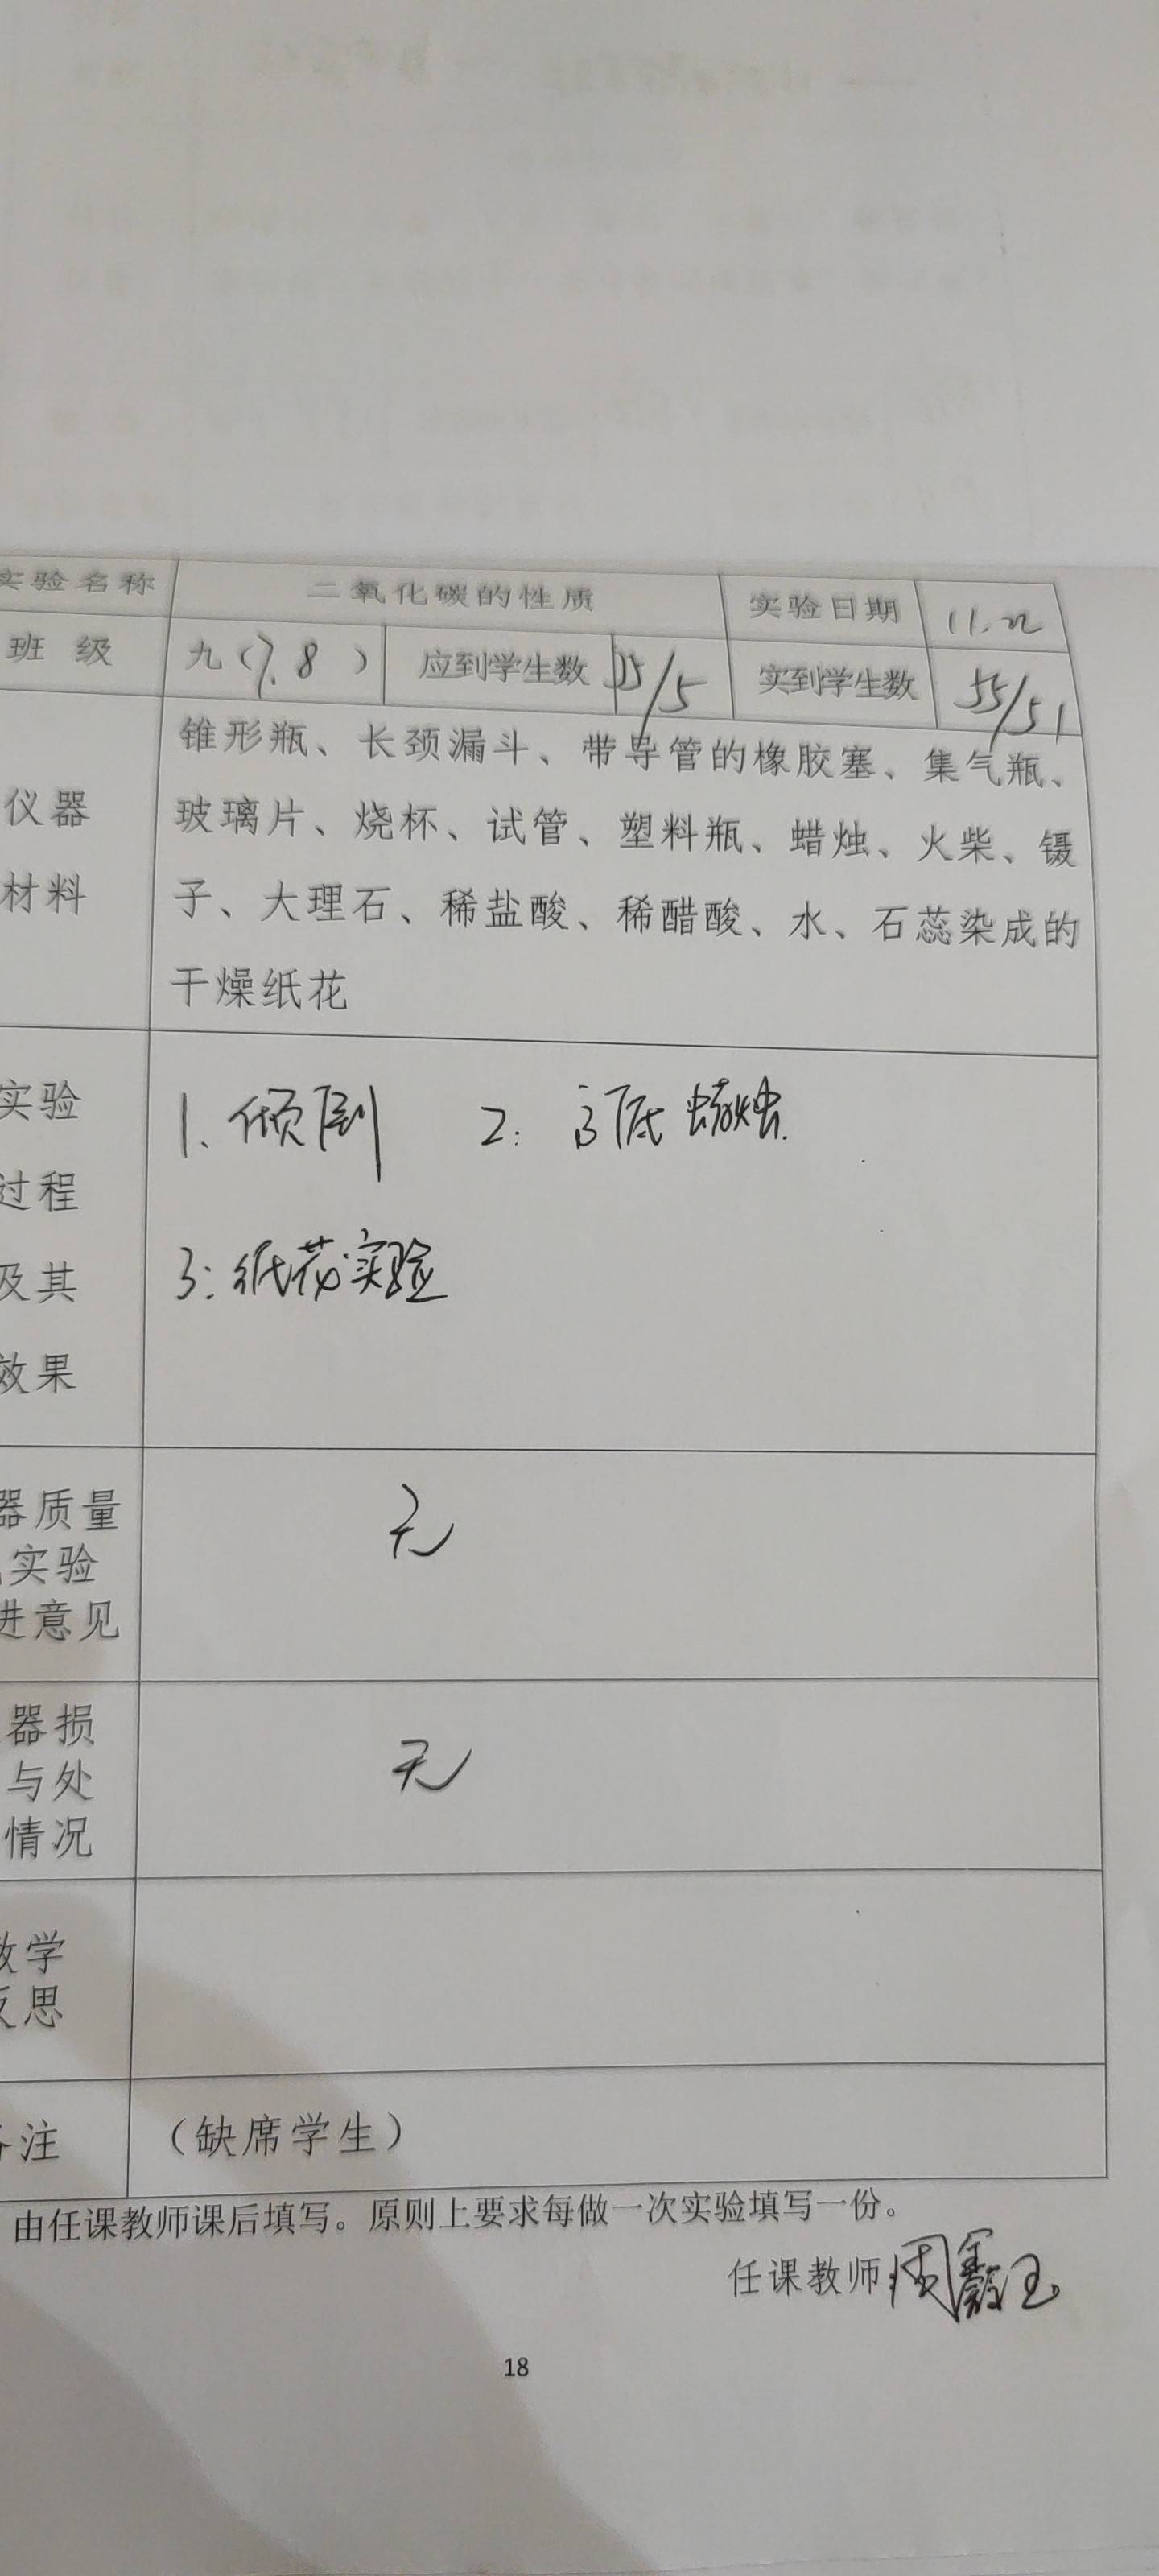 实验名称 二氧化碳的性质 实验日期 11.22
班级 九(7.8) 应到学生数 55/5 实到学生数 55/51
仪器
材料
锥形瓶、长颈漏斗、带导管的橡胶塞、集气瓶、
玻璃片、烧杯、试管、塑料瓶、蜡烛、火柴、镊
子、大理石、稀盐酸、稀醋酸、水、石蕊染成的
干燥纸花
实验
过程
及其
效果
1、倾倒 2: 高底蜡烛.
3: 纸花实验
器质量
实验
进意见
无
器损
与处
情况
无
教学
反思
备注 (缺席学生)
由任课教师课后填写。原则上要求每做一次实验填写一份。
任课教师 周
18